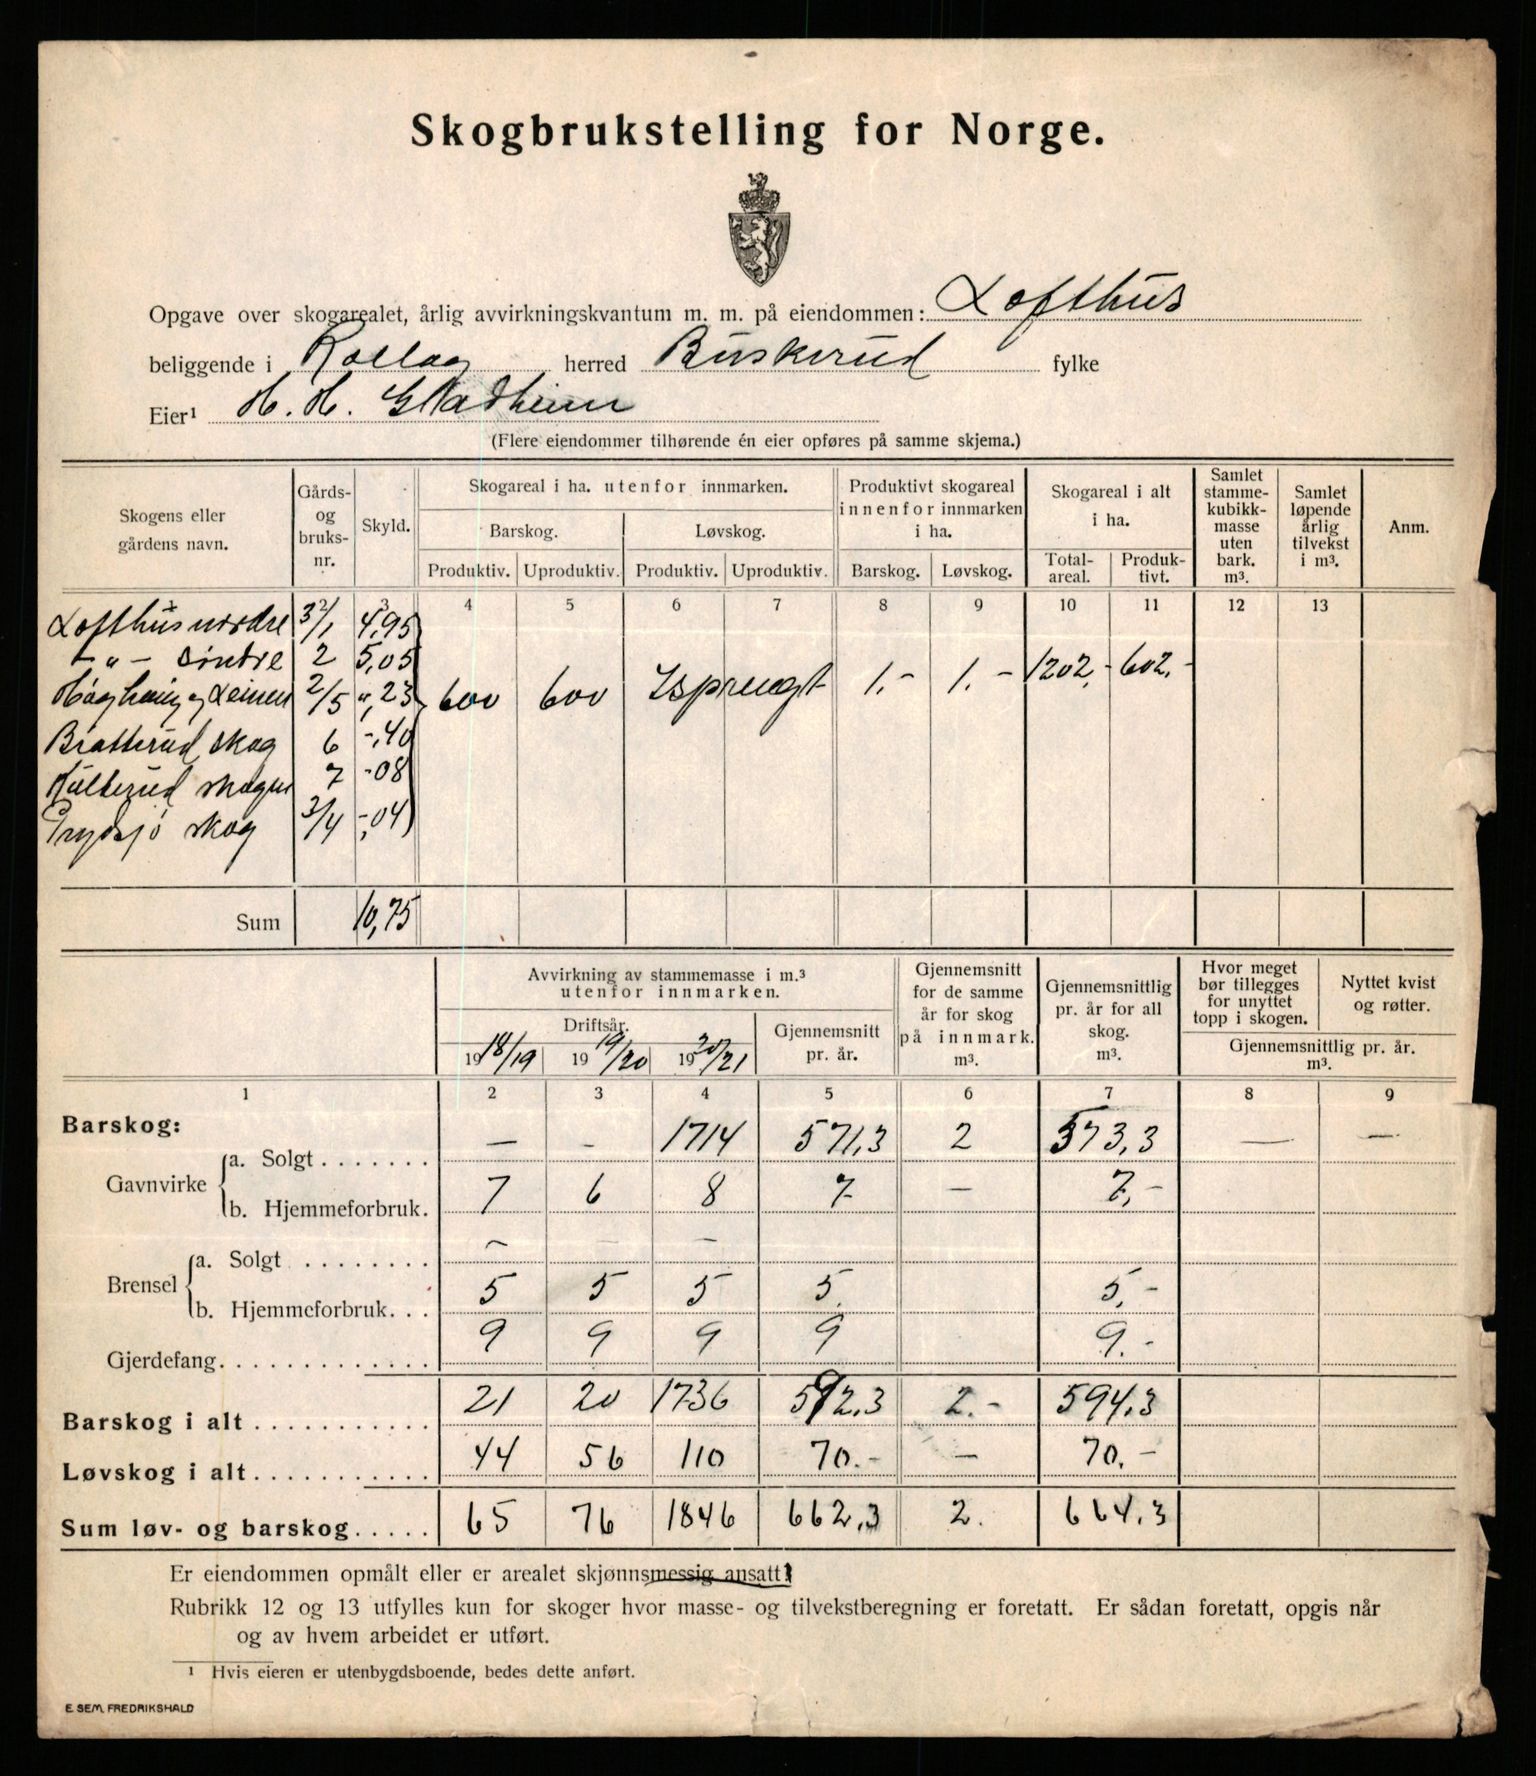 Skogbrukstelling for Norge.
Opgave over skogarealet, årlig avvirkningskvantum m. m. på eiendommen: Lofthus
beliggende i Rollag herred Buskerud fylke
Eier¹ H. H. Gladheim
(Flere eiendommer tilhørende én eier opføres på samme skjema.)
Skogens eller gårdens navn. Gårds- og bruks-nr. Skyld. Skogareal i ha. utenfor innmarken. Produktivt skogareal innenfor innmarken i ha. Skogareal i alt i ha. Samlet stamme-kubikk-masse uten bark. m³. Samlet løpende årlig tilvekst i m³. Anm.
Barskog. Løvskog.
Produktiv. Uproduktiv. Produktiv. Uproduktiv. Barskog. Løvskog. Total-areal. Produk-tivt.
1 2 3 4 5 6 7 8 9 10 11 12 13
Lofthus nordre 3/1 4,95
-"- söndre 2 5,05
Høghaug og Leinen 2/5 ",23 600 600 Isprengt 1.- 1.- 1202,- 602,-
Bratterud skog 6 -,40
Hulterud skogen 7 -08
skog 3/4 -,04
Sum 10,75
Avvirkning av stammemasse i m.³ utenfor innmarken. Gjennemsnitt for de samme år for skog på innmark. m³. Gjennemsnittlig pr. år for all skog. m³. Hvor meget bør tillegges for unyttet topp i skogen. Nyttet kvist og røtter.
Driftsår. Gjennemsnitt pr. år. Gjennemsnittlig pr. år. m³.
19 18/19 19 19/20 19 20/21
1 2 3 4 5 6 7 8 9
Barskog:
Gavnvirke a. Solgt . . . . . . . — - 1714 571,3 2 573,3 — —
b. Hjemmeforbruk. 7 6 8 7- — 7,-
Brensel a. Solgt . . . . . . . . — — —
b. Hjemmeforbruk. . . 5 5 5 5. 5,-
Gjerdefang. . . . . . . . . . . . . 9 9 9 9 9.-
Barskog i alt . . . . . . . . . . . 21 20 1736 592,3 2.- 594,3
Løvskog i alt . . . . . . . . . . . 44 56 110 70.- — 70,-
Sum løv- og barskog. . . . . 65 76 1846 662,3 2. 664,3
Er eiendommen opmålt eller er arealet skjønnsmessig ansatt?
Rubrikk 12 og 13 utfylles kun for skoger hvor masse- og tilvekstberegning er foretatt. Er sådan foretatt, opgis når
og av hvem arbeidet er utført.
¹ Hvis eieren er utenbygdsboende, bedes dette anført.
E. SEM, FREDRIKSHALD